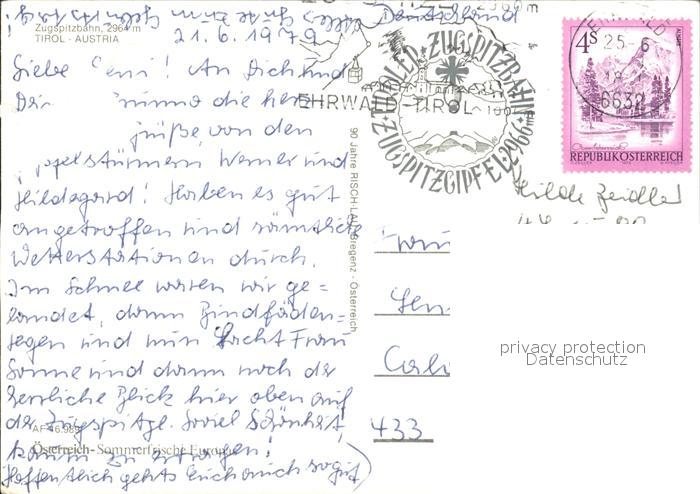 Zugspitzbahn, 2964 m
TIROL - AUSTRIA
21.6.1979
Liebe! An Dich und
die herz
grüße von den
Gipfelstürmern Werner und
Hildegard! Haben es gut
angetroffen und sämtliche
Wetterstationen durch.
Im Schnee waren wir ge=
landet, dann Bindfäden=
regen und nun lacht Frau
Sonne und dann noch der
herrliche Blick hier oben auf
der Zugspitze. Soviel Schönheit,
kaum zu ertragen!
Hoffentlich gehts Euch auch so gut
AF 16.989
Österreich - Sommerfrische Europas
90 Jahre RISCH-LAU, Bregenz - Österreich
Deutschland
EHRWALD-TIROL
TIROLER ZUGSPITZBAHN
ZUGSPITZGIPFEL 2964
EHRWALD
25-6
6632
4S
REPUBLIK ÖSTERREICH
Hilde Zeidler
Frau
433
privacy protection
Datenschutz